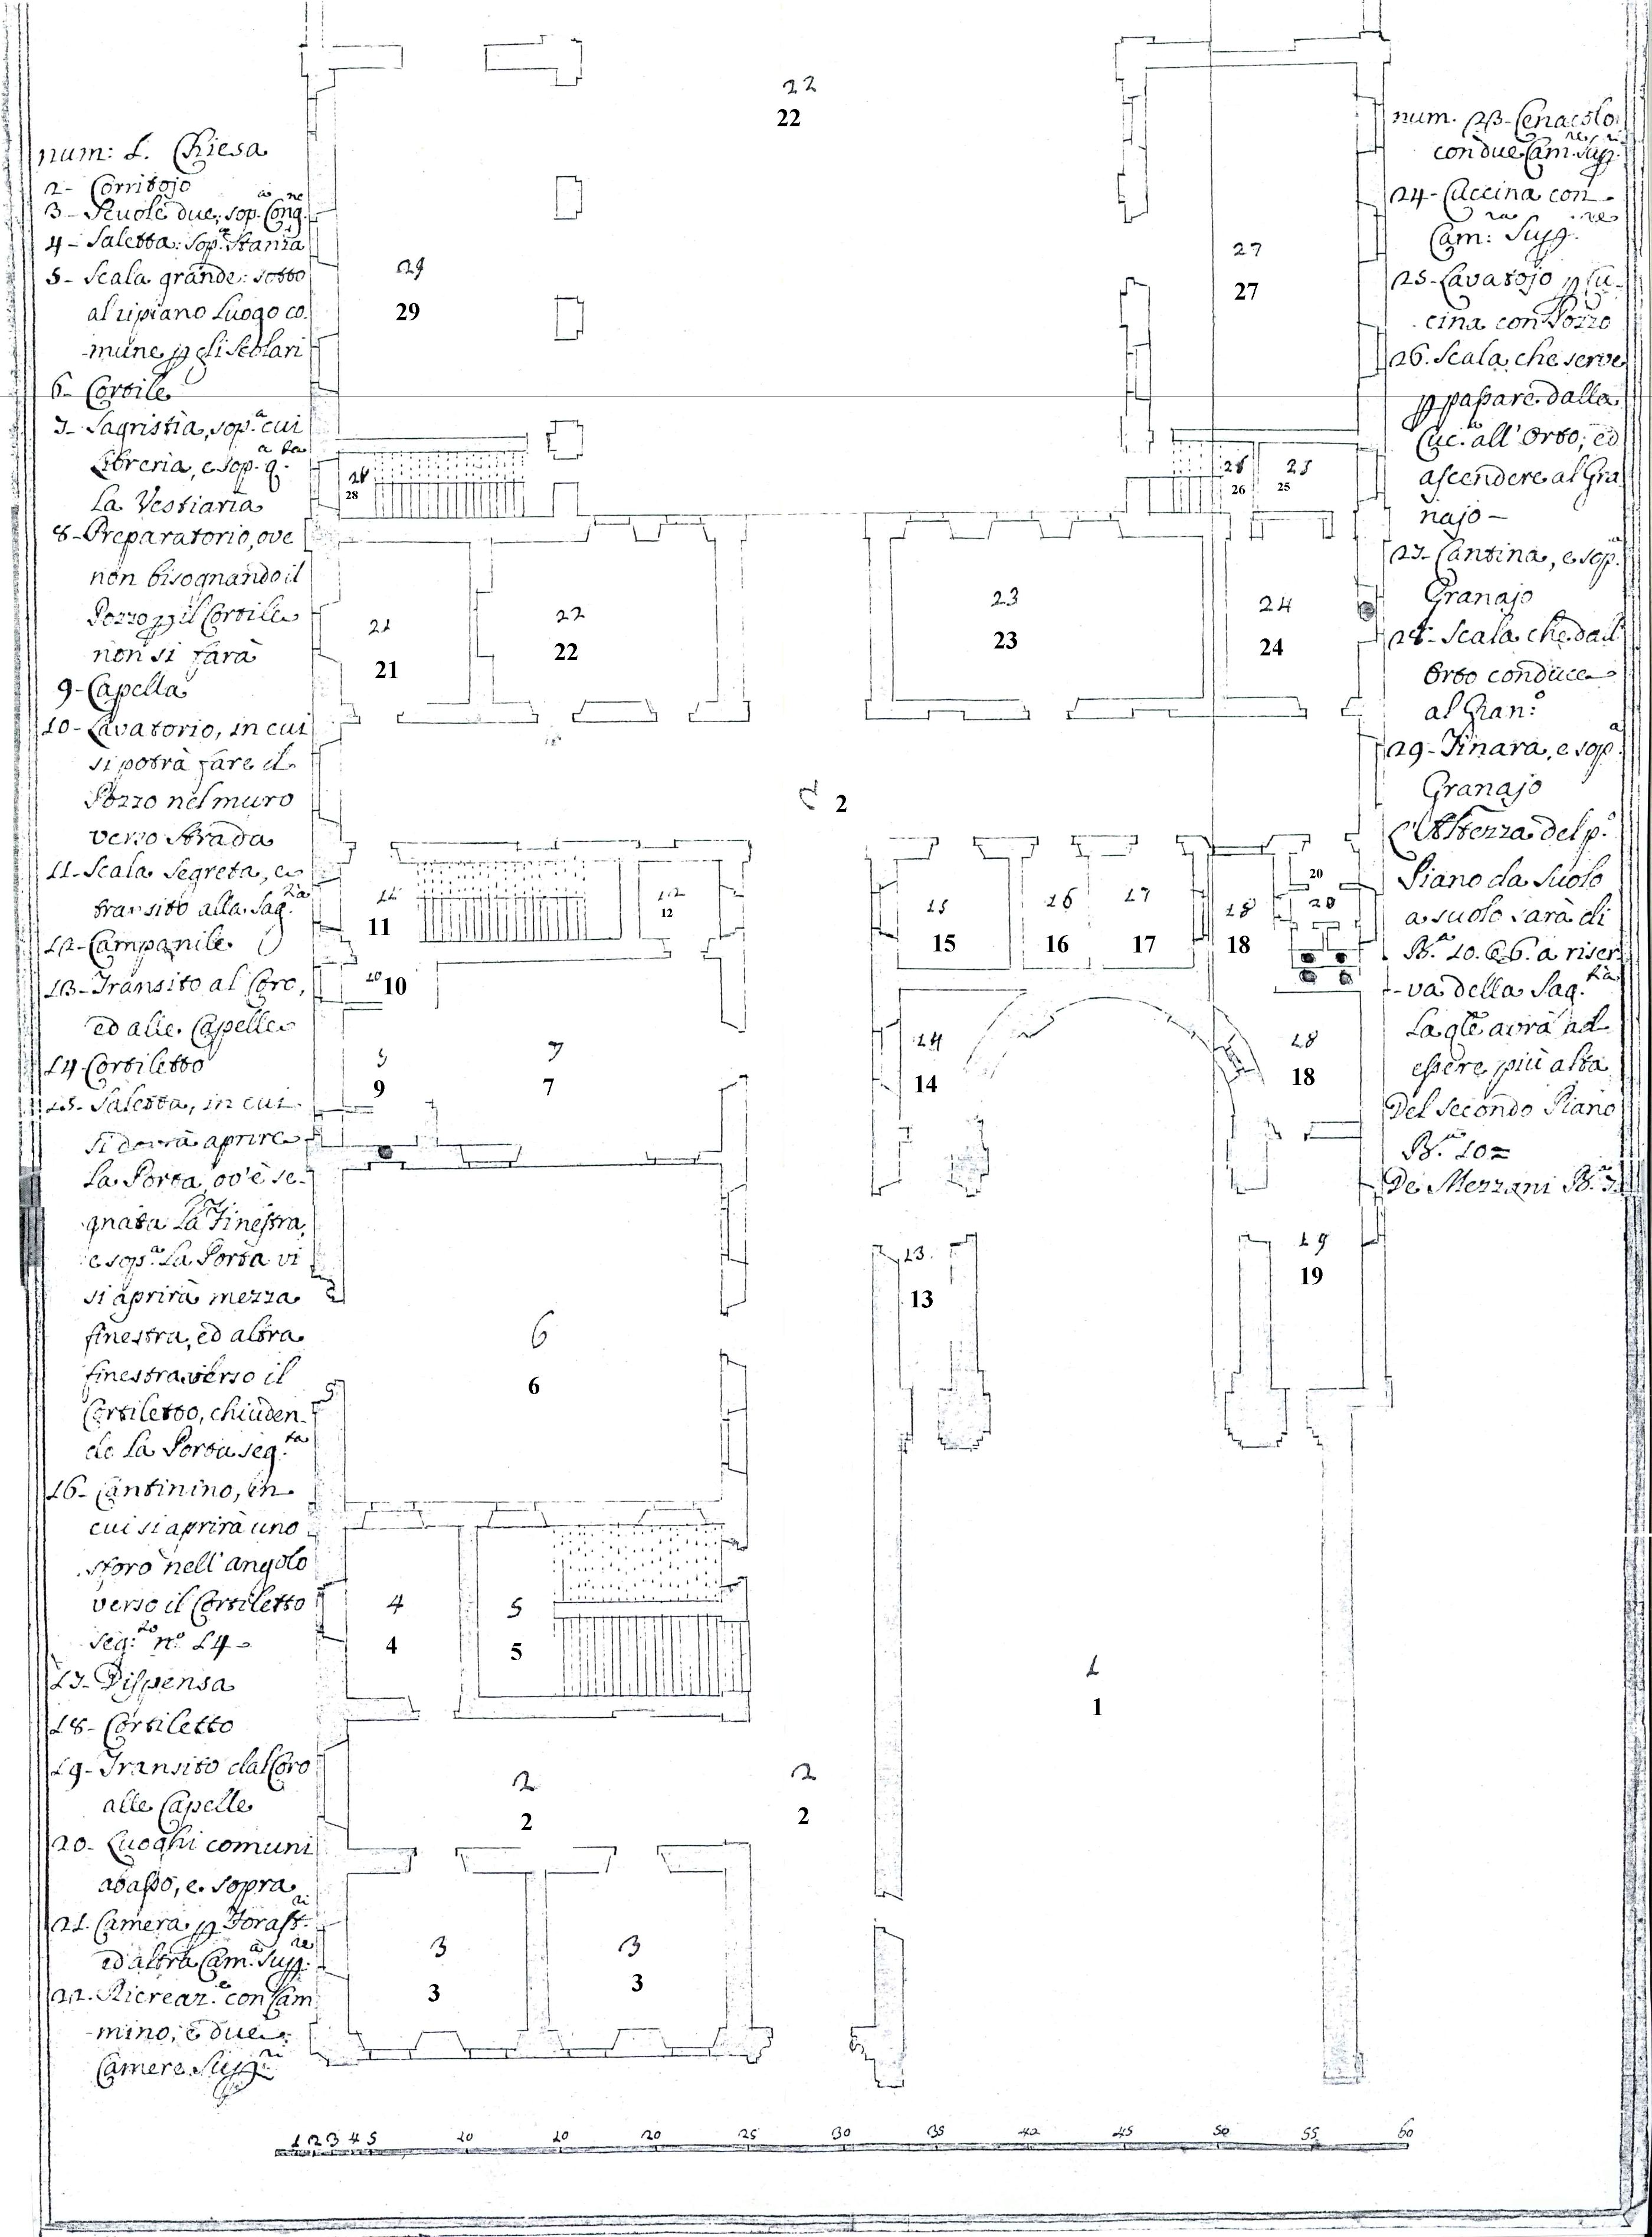 num: 1. Chiesa
2- Corritojo
3- Scuole due; sop.a Cong.ne
4- Saletta: sop.a Stanza
5- Scala grande: sotto
al ripiano Luogo co.
-mune p gli Scolari
6- Cortile
7- Sagristia, sop.a cui
Libreria, e sop.a q.ta
La Vestiaria
8- Preparatorio, ove
non bisognando il
Pozzo p il Cortile
non si farà
9- Capella
10- Lavatorio, in cui
si potrà fare il
Pozzo nel muro
verso Strada
11- Scala Segreta, e
transito alla Sag.tia
12- Campanile
13- Transito al Coro,
ed alle Capelle
14- Cortiletto
15- Saletta, in cui
si dovrà aprire
La Porta, ov'è se-
gnata La Finestra,
e sop.a La Porta vi
si aprirà mezza
finestra, ed altra
finestra verso il
Cortiletto, chiuden-
do La Porta seg.ta
16- Cantinino, in
cui si aprirà uno
sforo nell'angolo
verso il Cortiletto
Seg:to n.o 14-
17- Dispensa
18- Cortiletto
19- Transito dal Coro
alle Capelle
20- Luoghi comuni
abasso, e sopra
21. Camera p Forast.ri
ed altra Cam.a Sup.re
22. Ricreaz.e con Cam
-mino, e due
Camere Sup.ri
num. 23- Cenacolo
con due Cam.re Sup.ri
24- Cuccina con
Cam:ra Sup.re
25- Lavatojo p Cu-
cina con Pozzo
26. Scala che serve
p passare dalla
Cuc.a all'Orto, ed
ascendere al Gra
najo-
27- Cantina, e sop.a
Granajo
28- Scala che dall'
Orto conduce
al Gran:o
29- Tinara, e sop.a
Granajo
L'Altezza del p.o
Piano da suolo
a suolo sarà di
B.a 10. 6. a riser
-va della Sag.tia
La qle avrà ad
essere più alta
Del secondo Piano
B.a 10=
De Mezzani B.a 7
22
22
29
29
27
27
28
28
26
26
25
25
21
21
22
22
23
23
24
24
2
2
11
11
12
12
15
15
16
16
17
17
18
18
20
20
10
10
9
9
7
7
14
14
18
18
13.
13
19
19
6
6
4
4
5
5
1
1
2
2
2
2
3
3
3
3
1 2 3 4 5 10 10 20 25 30 35 40 45 50 55 60